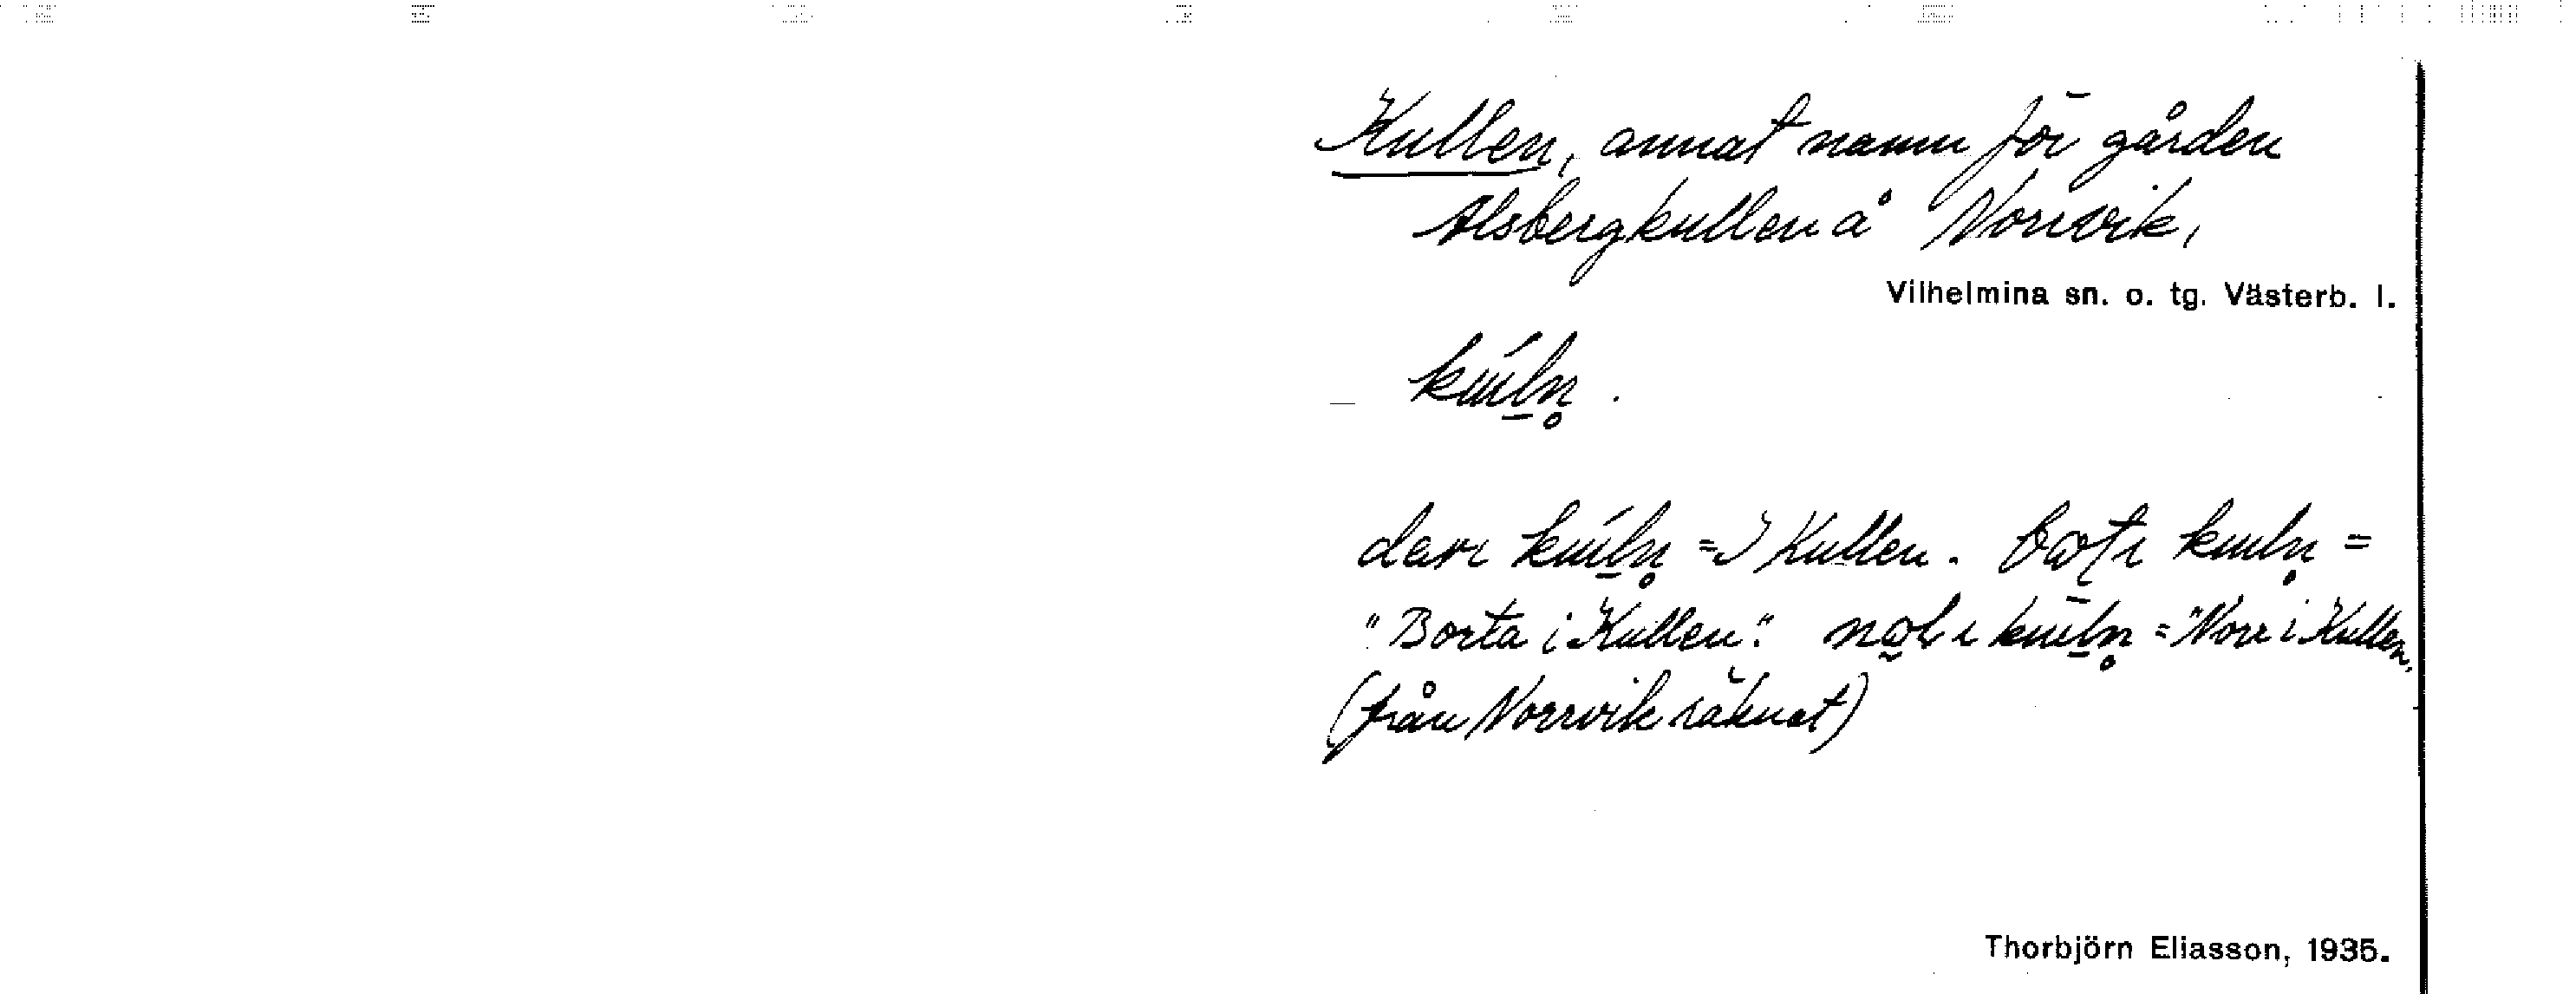 Kullen, annat namn för gården
Alsbergkullen å Norrvik,
Vilhelmina sn. o. tg. Västerb. l.
kúln̥.
kúln̥ = I Kullen. kuln̥ =
"Borta i Kullen". kúln̥ = "Norr i Kullen.
(från Norrvik räknat)
Thorbjörn Eliasson, 1935.